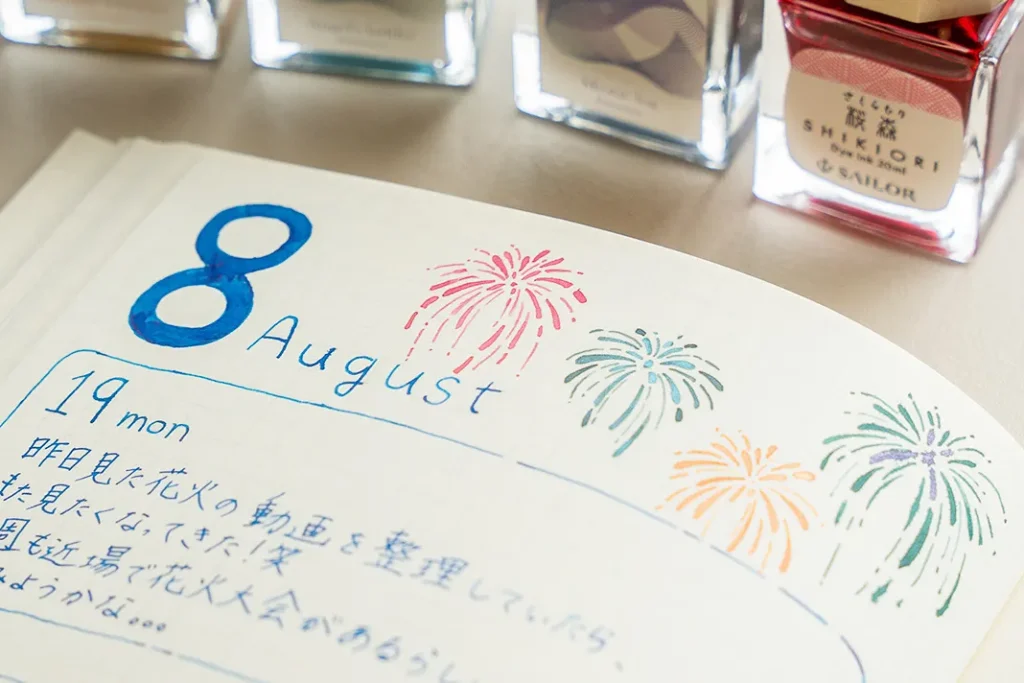 さくらもり
桜森
SHIKIORI
Dye Ink 20ml
SAILOR
8
August
19 mon
昨日見た花火の動画を整理していたら、
また見たくなってきた！笑
週も近場で花火大会があるらし
みようかな...